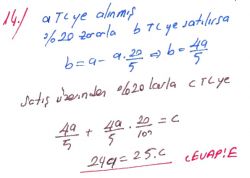 14./ a TL ye alınmış
%20 zararla b TL ye satılırsa
b = a - a.20/5 ⇒ b = 4a/5
Satış üzerinden %20 karla c TL ye
4a/5 + 4a/5 . 20/100 = c
24a = 25.c
CEVAP: E